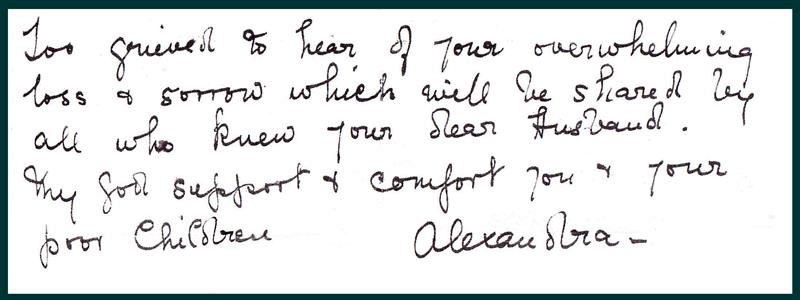 Too grieved to hear of your overwhelming
loss & sorrow which will be shared by
all who knew your dear Husband.
My God support & comfort you & your
poor Children Alexandra –